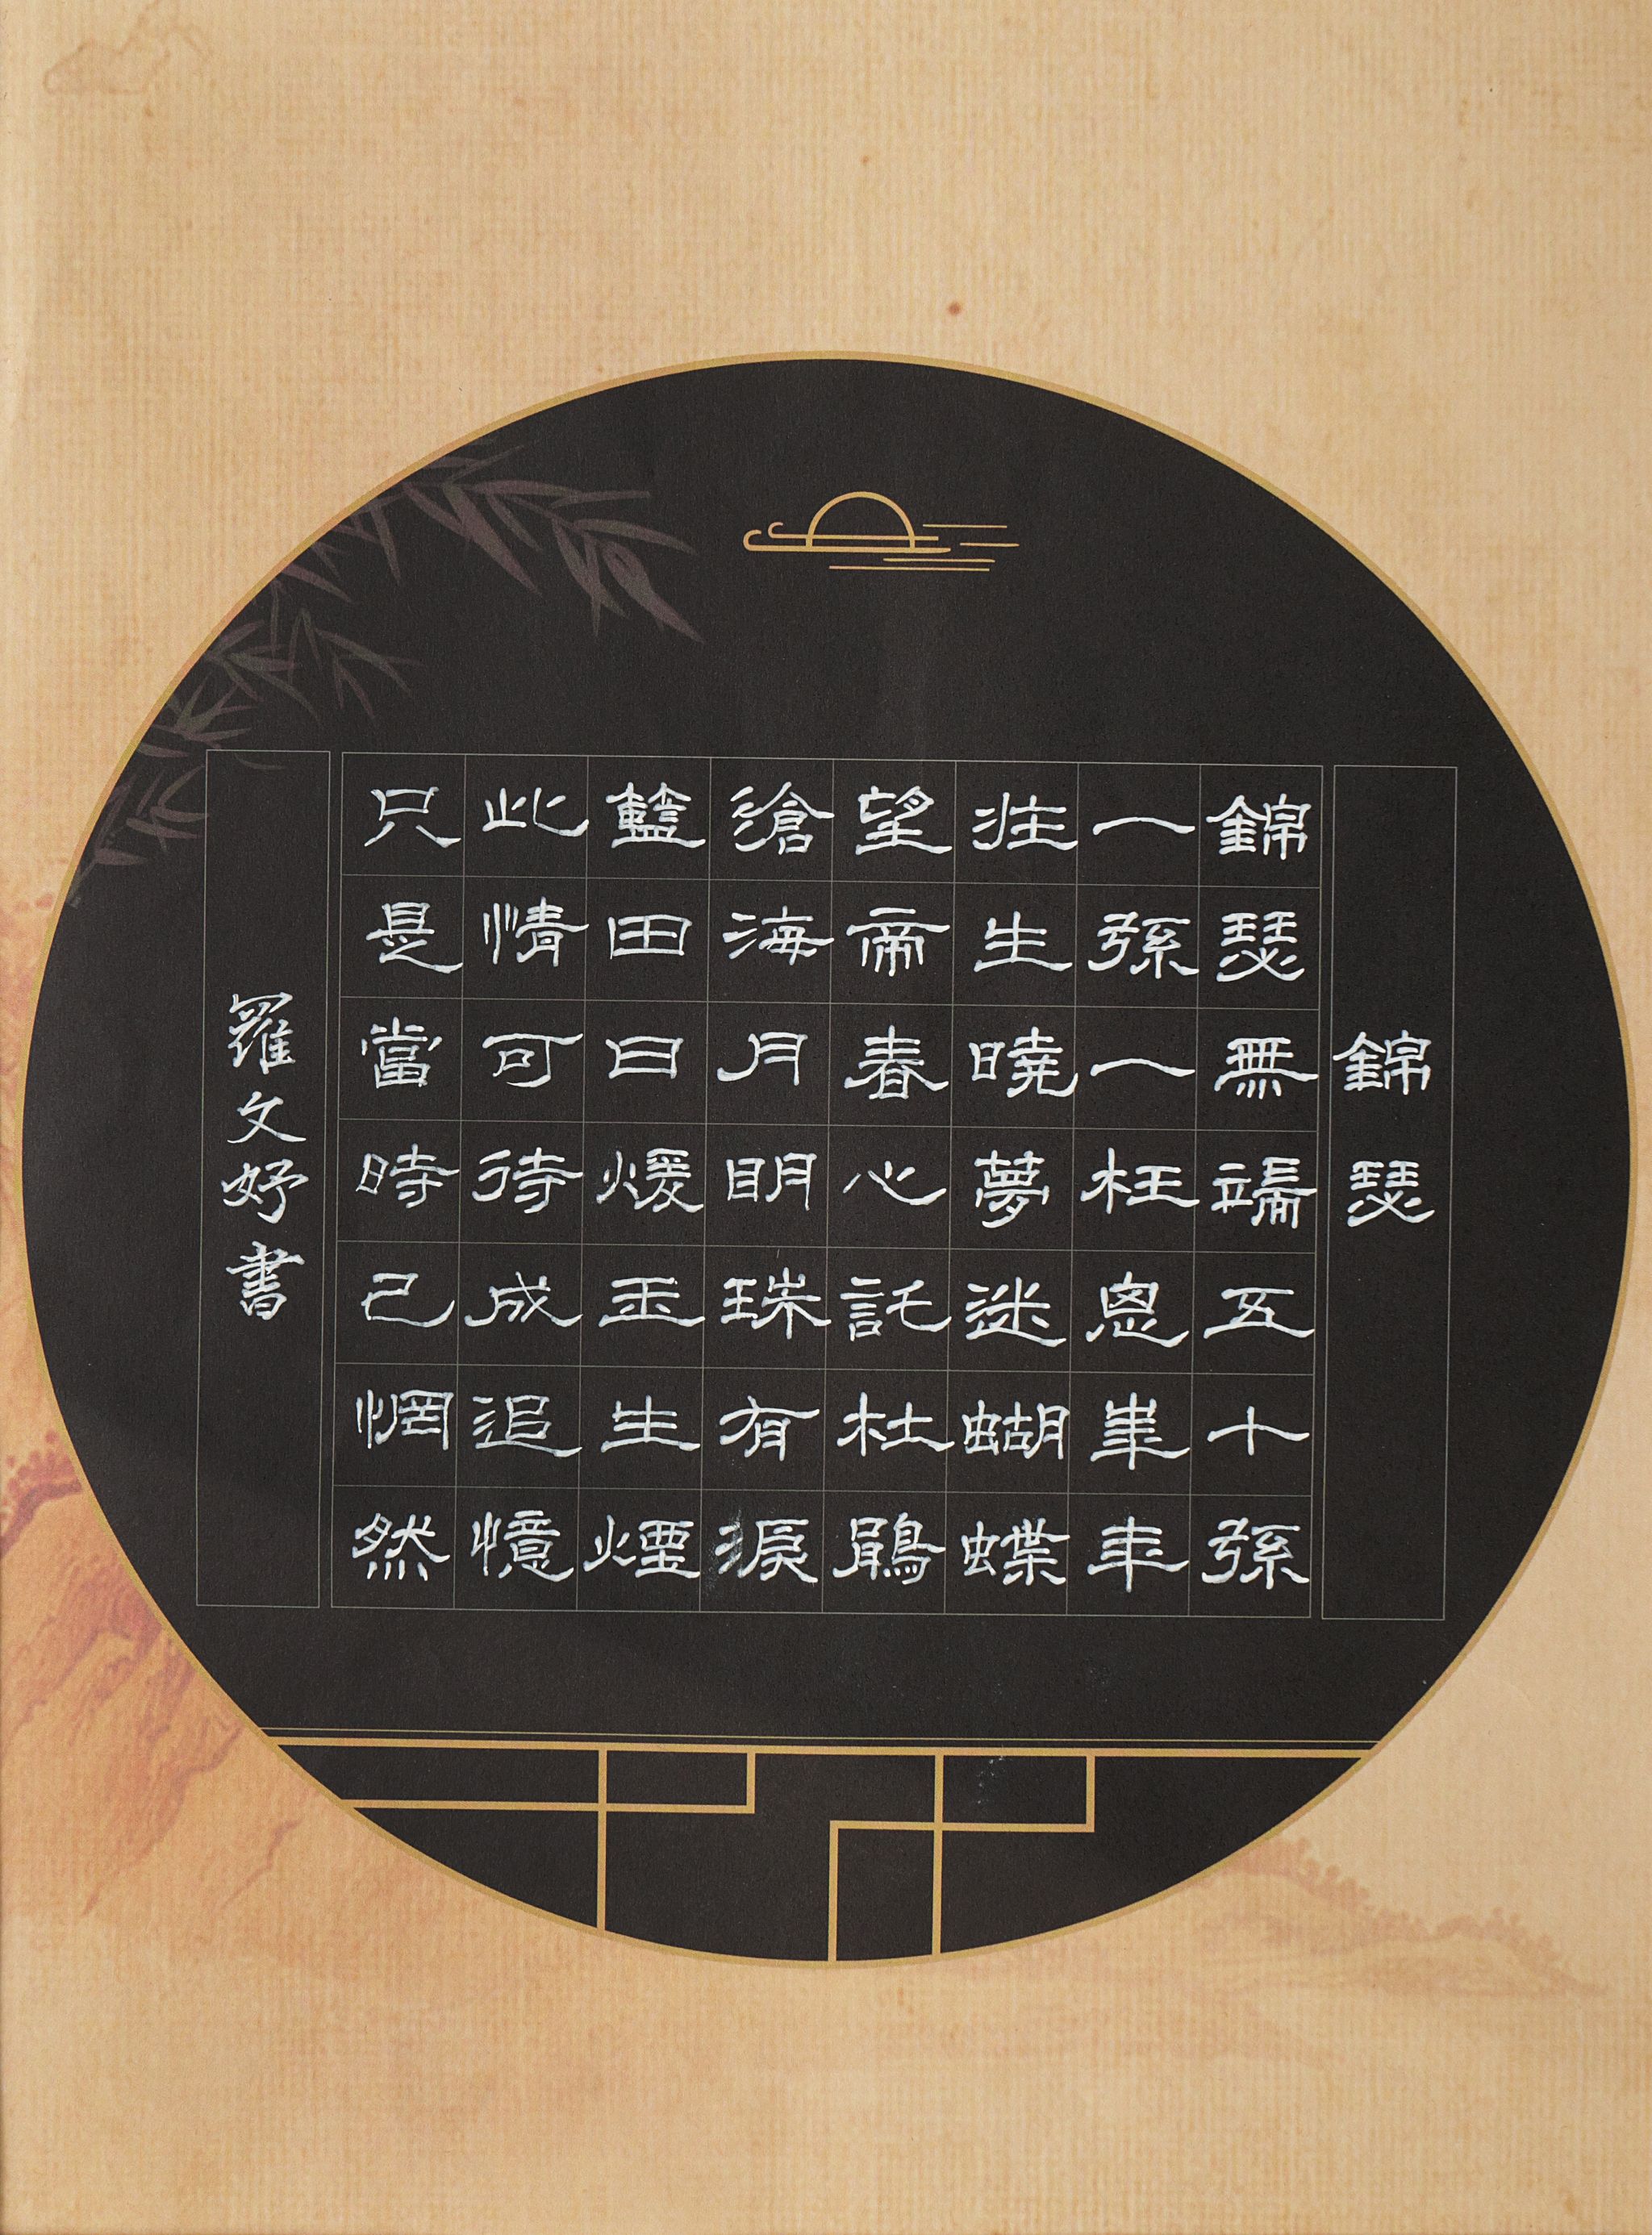 錦瑟
錦瑟無端五十弦
一弦一柱思華年
莊生曉夢迷蝴蝶
望帝春心託杜鵑
滄海月明珠有淚
藍田日煖玉生煙
此情可待成追憶
只是當時已惘然
羅文妤書